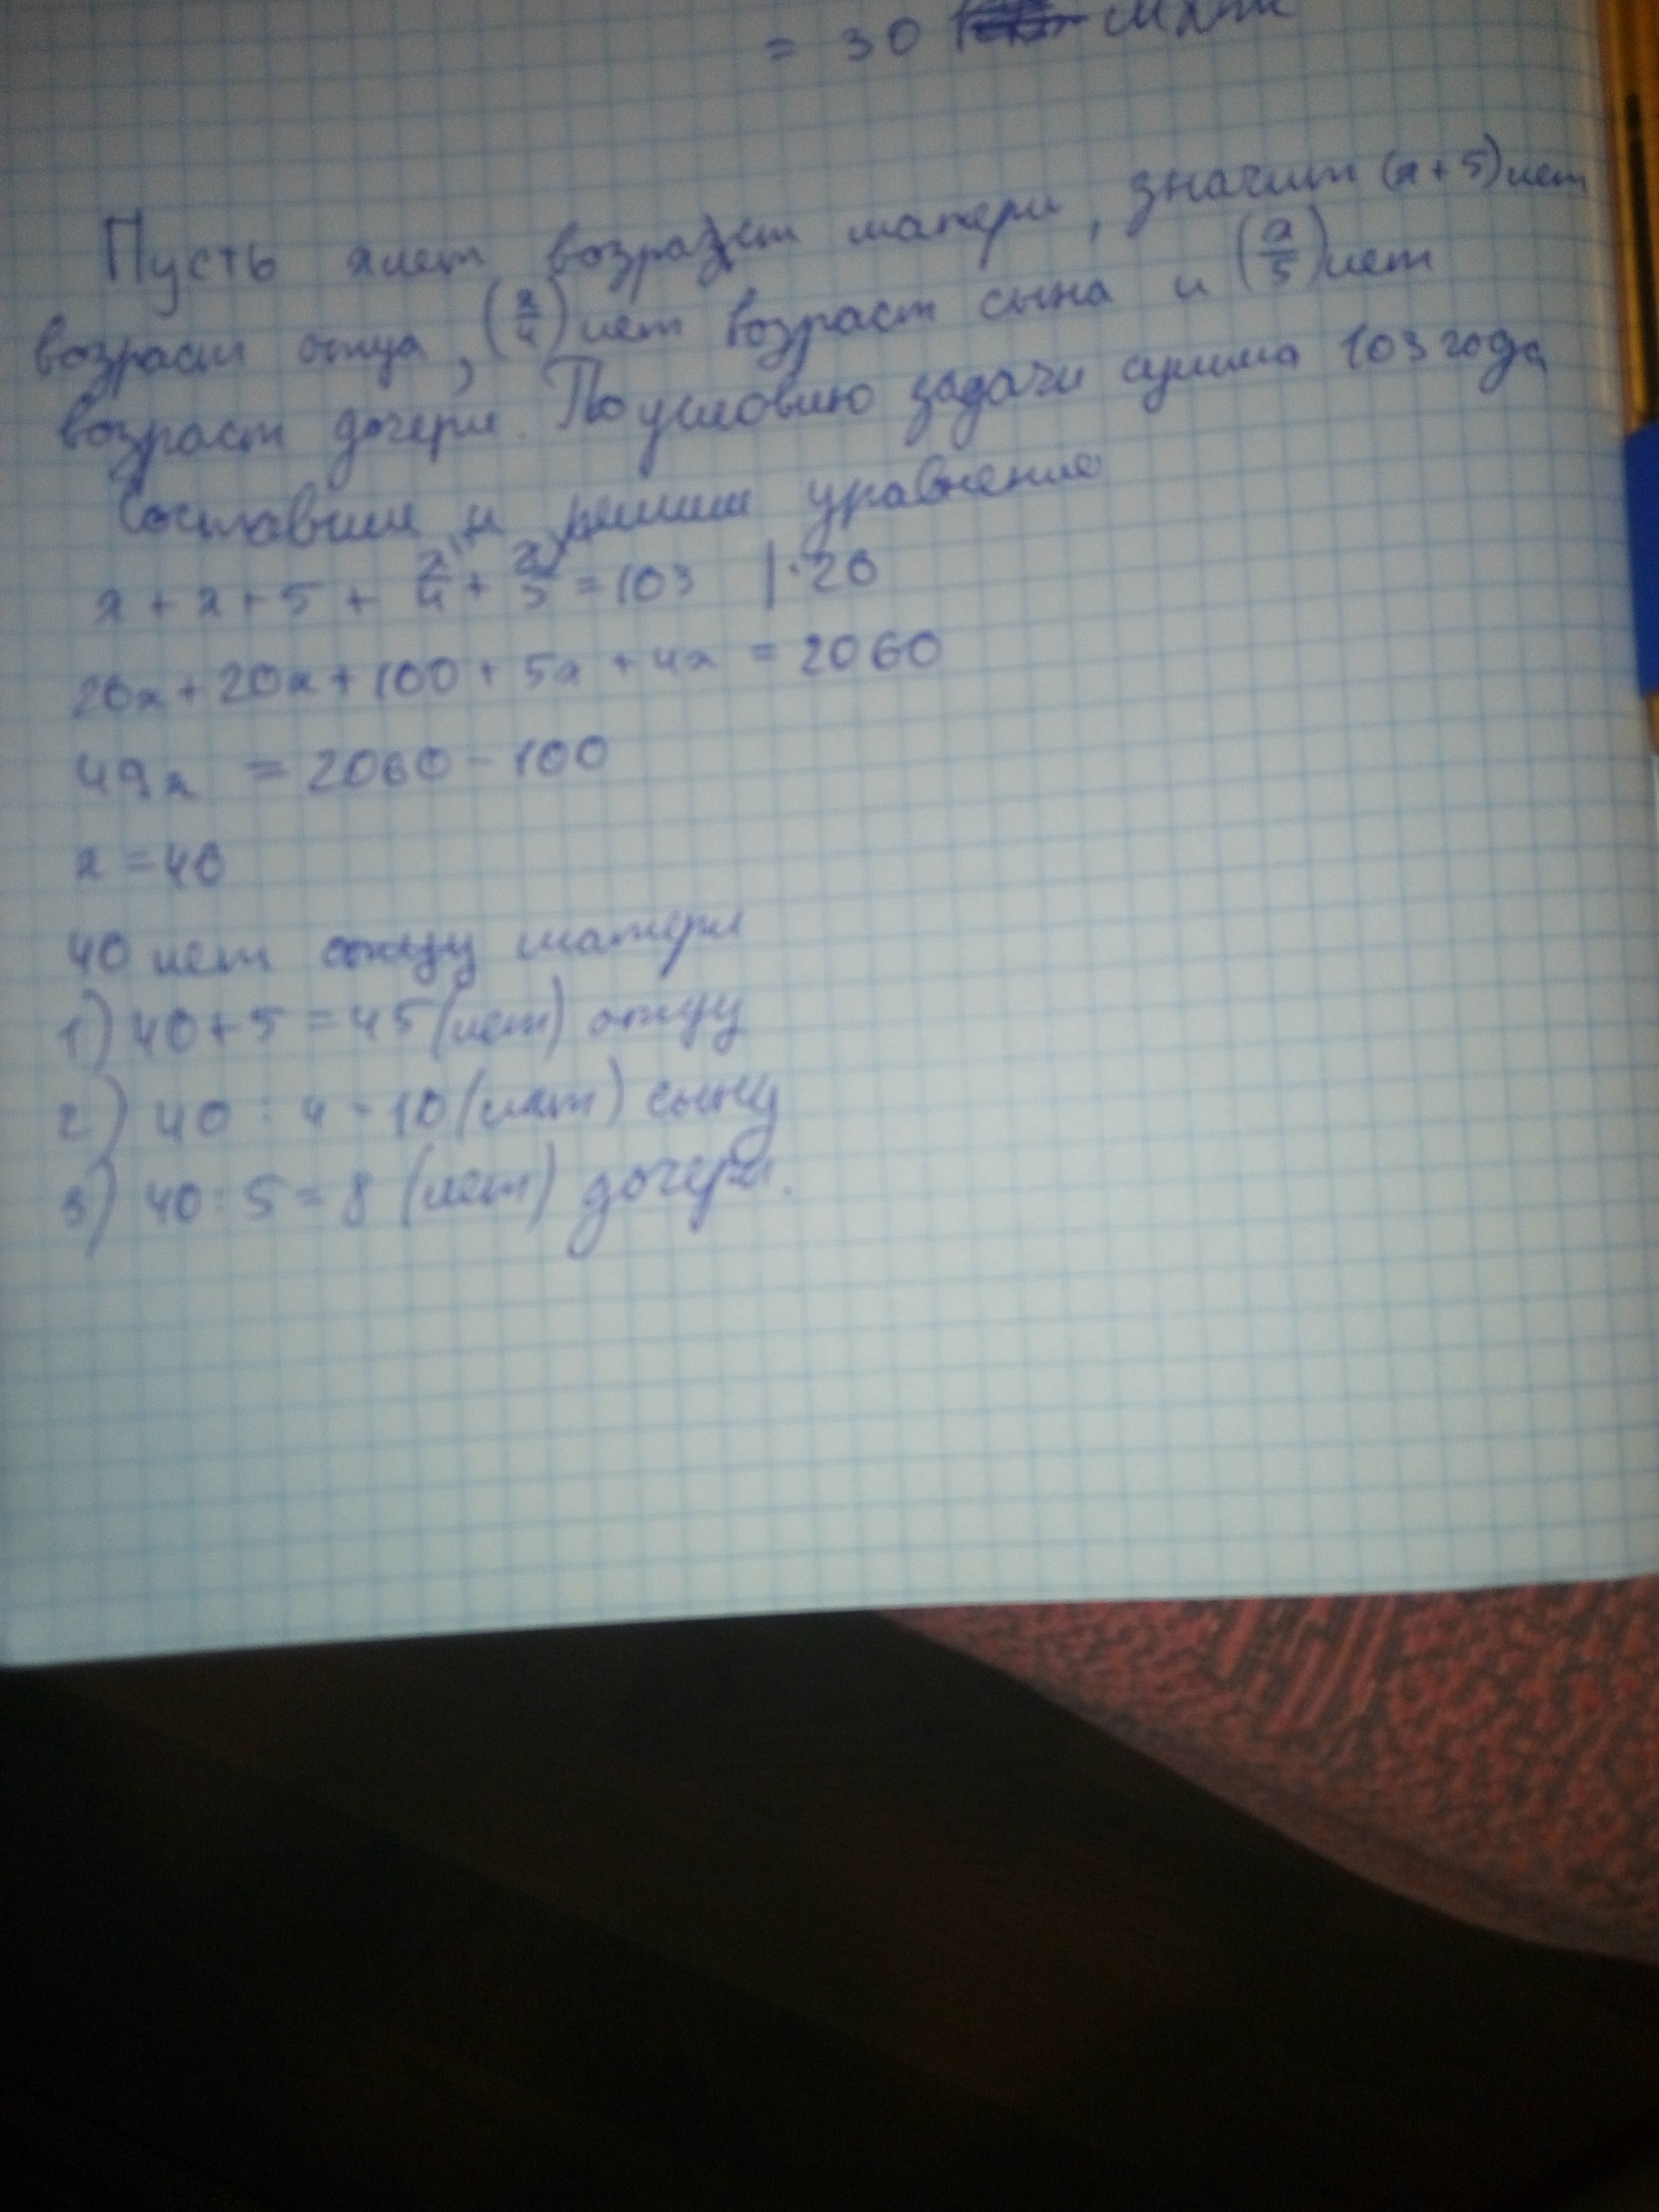 = 30 мин
Пусть x лет возраст матери, значит (x + 5) лет
возраст отца, (x/4) лет возраст сына и (x/5) лет
возраст дочери. По условию задачи сумма 103 года
Составим и решим уравнение
x + x + 5 + x/4 + x/5 = 103 | · 20
20x + 20x + 100 + 5x + 4x = 2060
49x = 2060 - 100
x = 40
40 лет матери
1) 40 + 5 = 45 (лет) отцу
2) 40 : 4 = 10 (лет) сыну
3) 40 : 5 = 8 (лет) дочери.